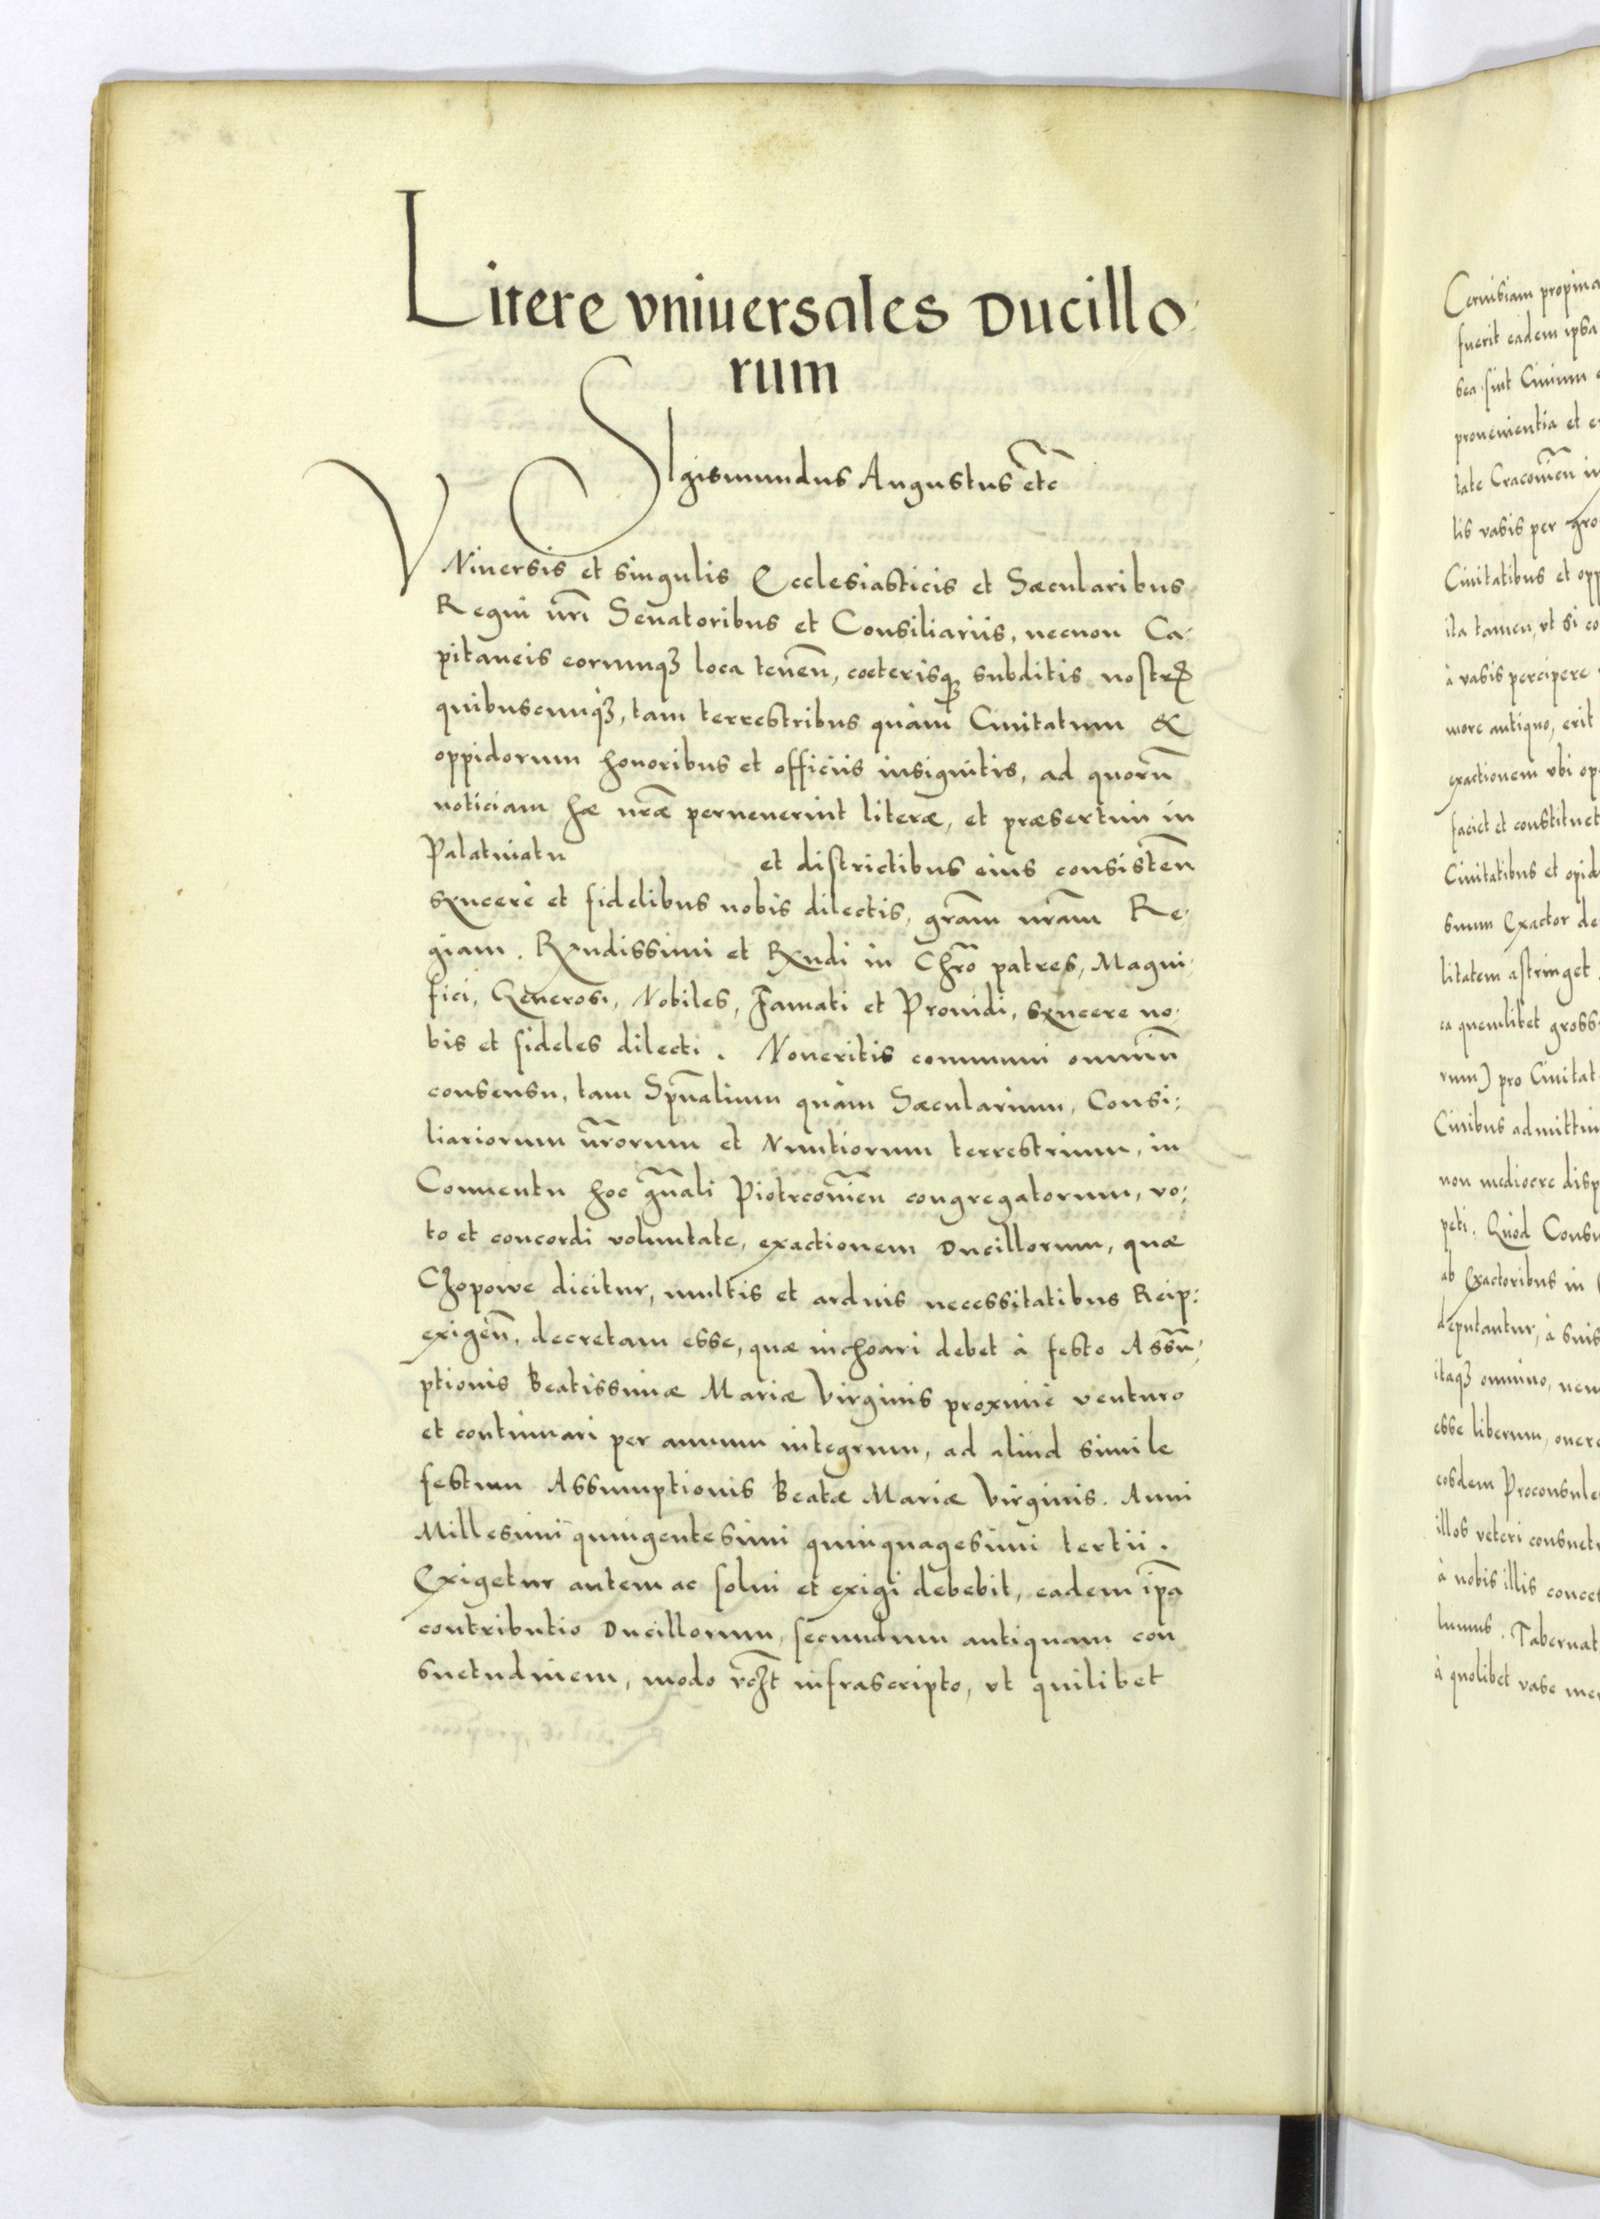 Litere vniuersales Ducillo:
rum
SIgismundus Augustus etc̃
VNiuersis et singulis Ecclesiasticis et Sæcularibus
Regni nr̃i Senatoribus et Consiliariis, necnon Ca:
pitaneis eorumqꝫ loca teneñ, cœterisqꝫ subditis nostrꝭ
quibuscunqꝫ, tam terrestribus quàm Ciuitatum &
oppidorum honoribus et officiis insignitis, ad quorũ
noticiam hæ nr̃æ peruenerint literæ, et præsertim in
Palatinatu et districtibus eius consisteñ
syncerè et fidelibus nobis dilectis, gr̃am nr̃am Re:
giam. Rx̃ndissimi et Rx̃ndi in Chr̃o patres, Magni:
fici, Generosi, Nobiles, Famati et Prouidi, syncere no:
bis et fideles dilecti. Noueritis communi omniũ
consensu, tam Spũalium quàm Sæcularium, Consi:
liariorum nr̃orum et Nuntiorum terrestrium, in
Conuentu hoc gñali Piotrcouieñ congregatorum, vo:
to et concordi voluntate, exactionem Ducillorum, quæ
Czopowe dicitur, multis et arduis necessitatibus Reip:
exigeñ, decretam esse, quæ inchoari debet à festo Assũ:
ptionis Beatissimæ Mariæ Virginis proximè venturo
et continuari per annum integrum, ad aliud simile
festum Assumptionis Beatæ Mariæ Virginis. Anni
Millesimi quingentesimi quinquagesimi tertii.
Exigetur autem ac solui et exigi debebit, eadem ip̃a
contributio Ducillorum, secundum antiquam con
suetudinem, modo infrascripto, vt quilibet
Ceruisiam
fuerit eadem ipsa
sea. sint Ciuium
prouenientia et
tate Cracouieñ in
lis vasis per
Ciuitatibus et
ita tamen, vt si
à vasis percipere
more antiquo, erit
exactionem vbi
faciet et constituet
Ciuitatibus et
suum Exactor
litatem astringet
ca quemlibet
rum) pro
Ciuibus
non mediocre
peti. Quòd
ab Exactoribus in
deputantur, à suis
itaqꝫ omnino,
esse liberum,
eosdem
illos veteri
à nobis illis
lumus.
à quolibet vase